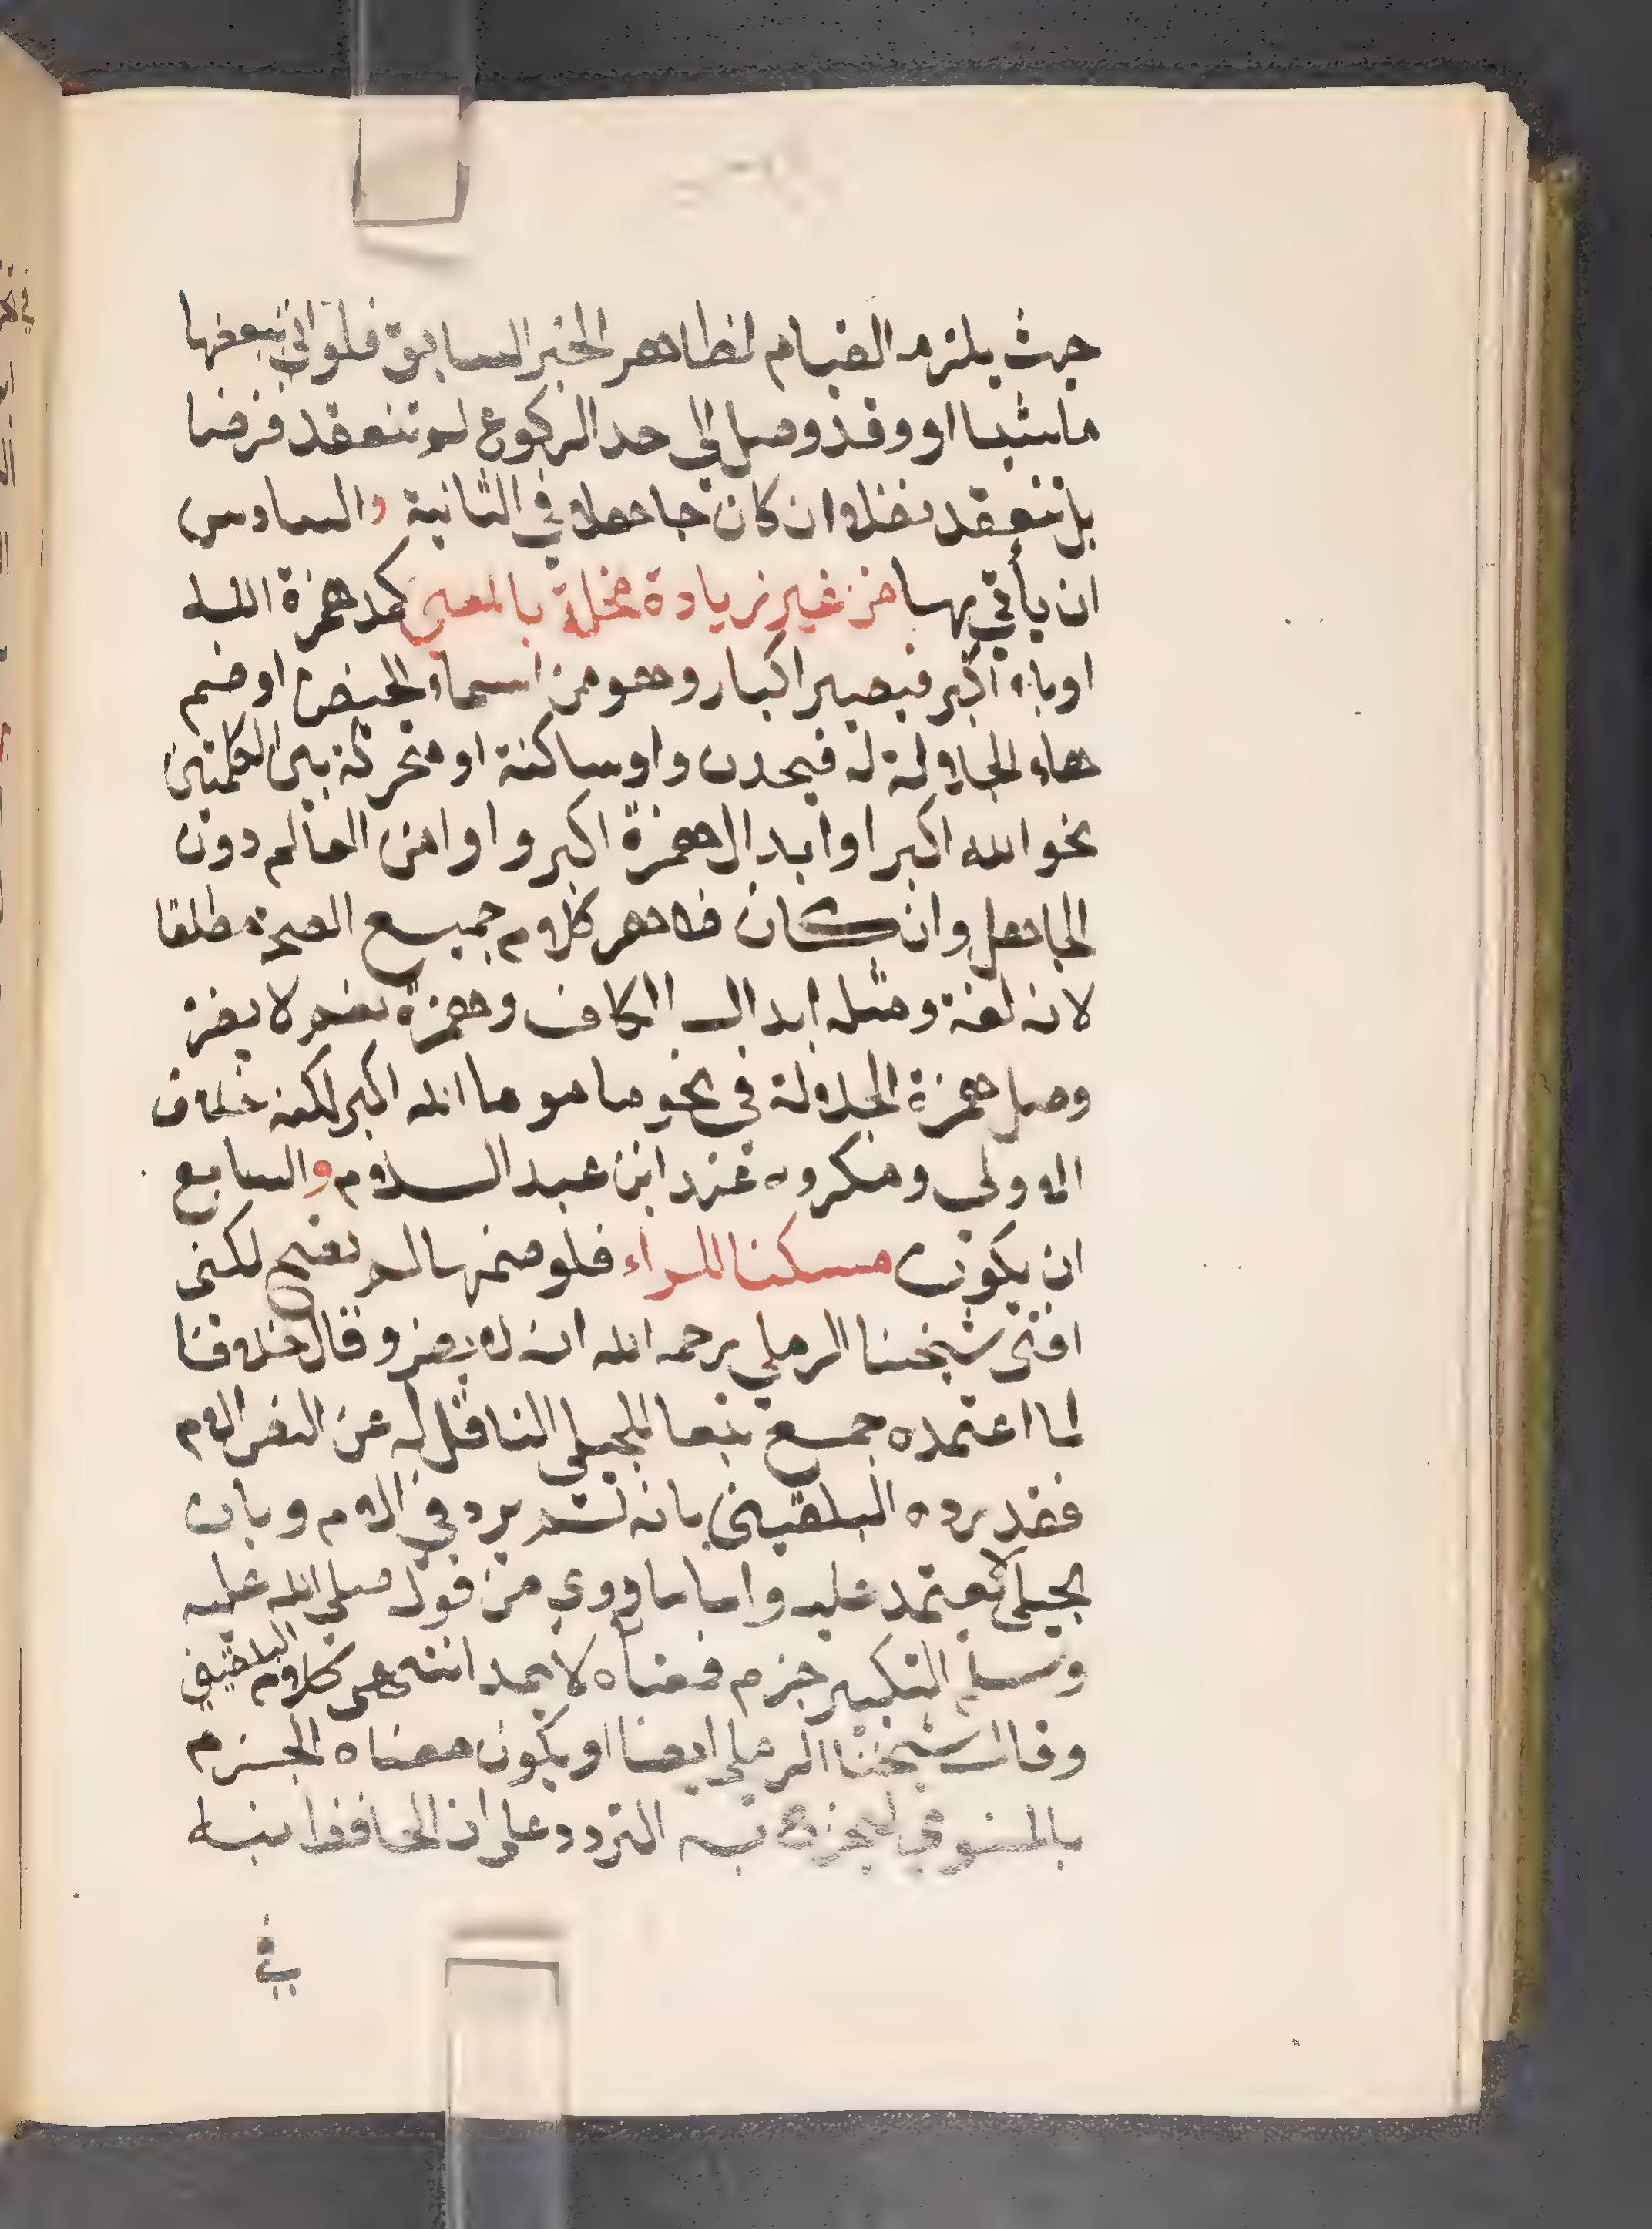 حيث يلزمه القيام لظاهر الخبر السابق فلو اتى ببعضها
ماشيا او وقد وصل الى حد الركوع لم تنعقد فرضا
بل تنعقد نفلا ان كان جاهلا في الثانية والسادس
ان يأتي بها من غير زيادة مخلة بالمعنى كمد همزة الله
او باء اكبر فيصير اكبار وهو من اسماء الحيض او ضم
هاء الجلالة له فيحدث واو ساكنة او متحركة بين الكلمتين
نحو الله اكبر او ابدال همزة اكبر واوا من العالم دون
الجاهل وان كان ظاهر كلام جميع الصحة مطلقا
لانه لغة ومثله ابدال الكاف وهمزة نعم لا يضر
وصل همزة الجلالة في نحو ماموما الله اكبر لكنه خلاف
الاولى ومكروه عند ابن عبد السلام والسابع
ان يكون مسكنا للراء فلو ضمها لم تصح لكن
افتى شيخنا الرملي رحمه الله انه لا يضر وقال خلافا
لما اعتمده جمع تبعا للجيلي الناقل له عن النص الام
فقد رده البلقيني بانه لم يرد في الام وبان
الجيلي لا يعتمد عليه واما ما روي من قوله صلى الله عليه
وسلم التكبير جزم فمعناه لا يمد انتهى كلام البلقيني
وقال شيخنا الرملي ايضا او يكون معناه الجزم
بالمنوي التردد على ان الحافظ نبه
في